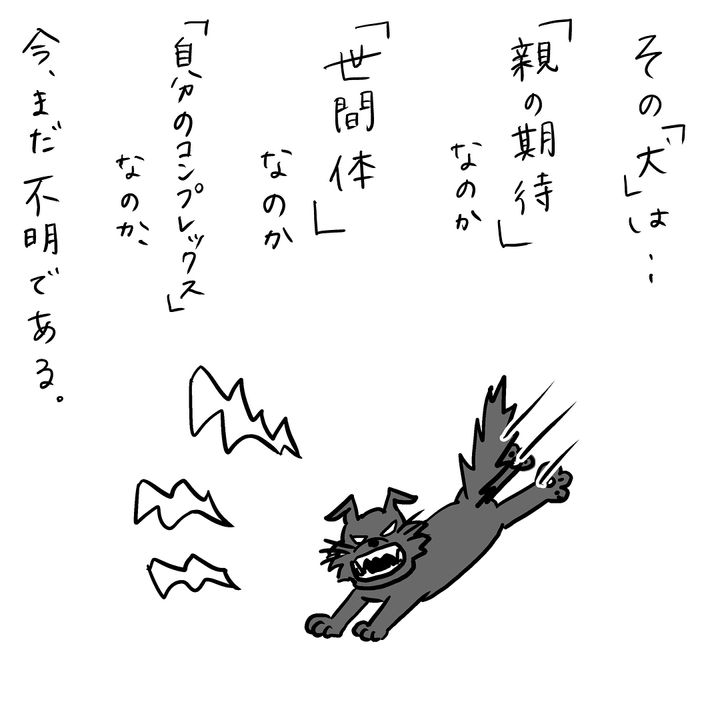 その「犬」は…
「親の期待」
なのか
「世間体」
なのか
「自分のコンプレックス」
なのか、
今、まだ不明である。